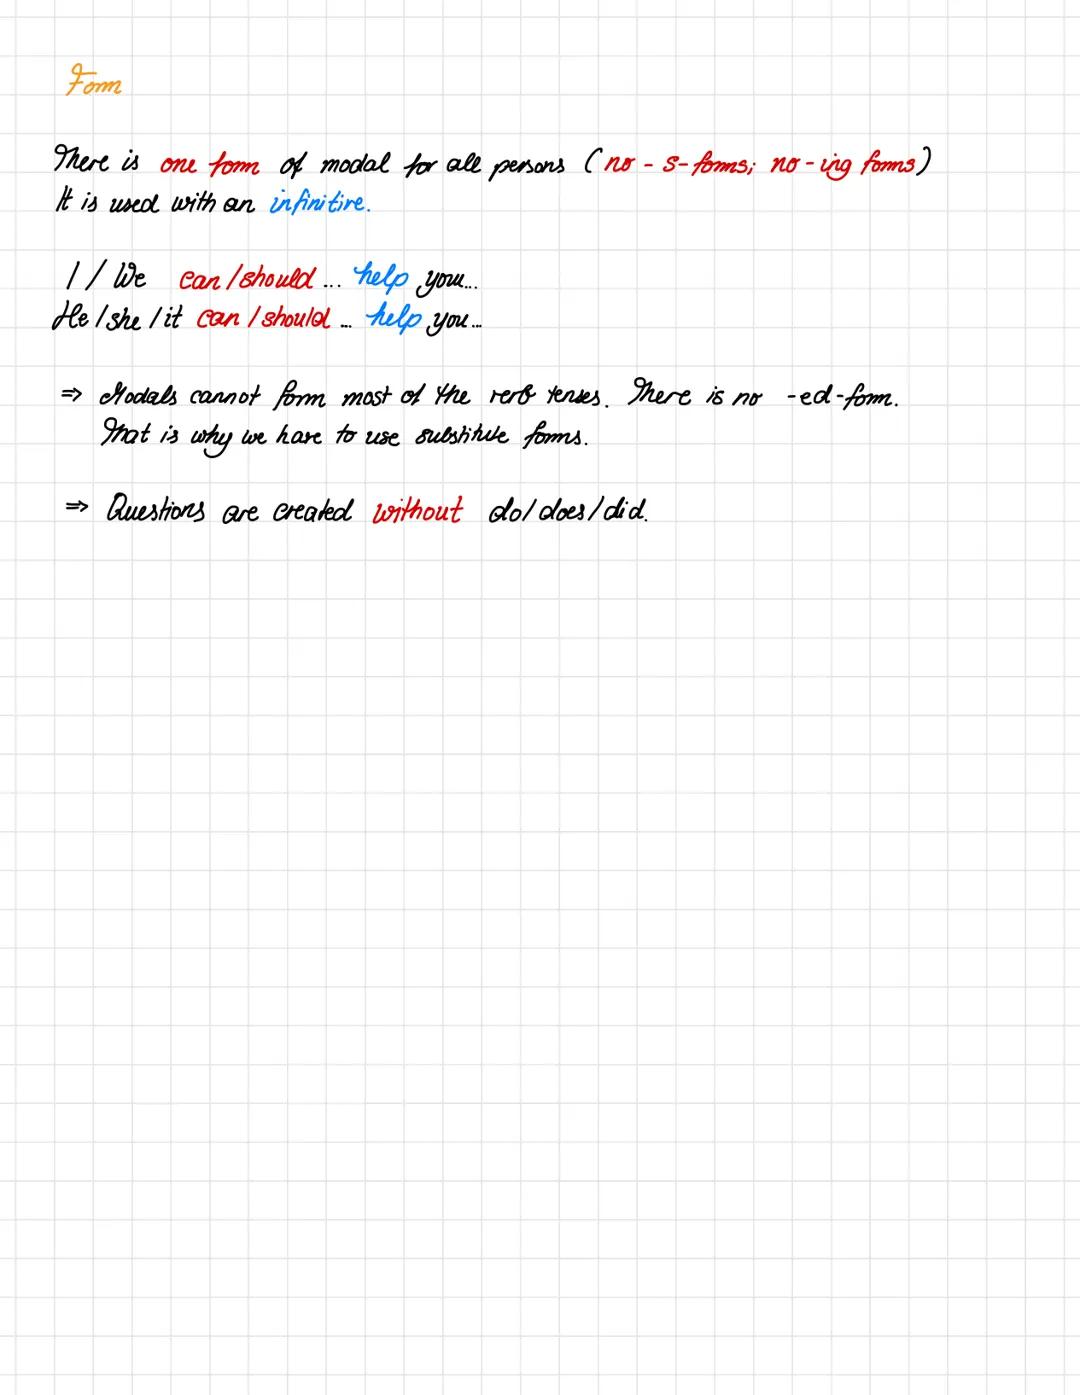 Form
There is one form of modal for all persons (no - s-forms; no -ing forms)
It is used with an infinitive.
I / We can/should ... help you...
He/she/it can/should ... help you...
⇒ Modals cannot form most of the verb tenses. There is no -ed-form.
That is why we have to use substitute forms.
⇒ Questions are created without do/does/did.